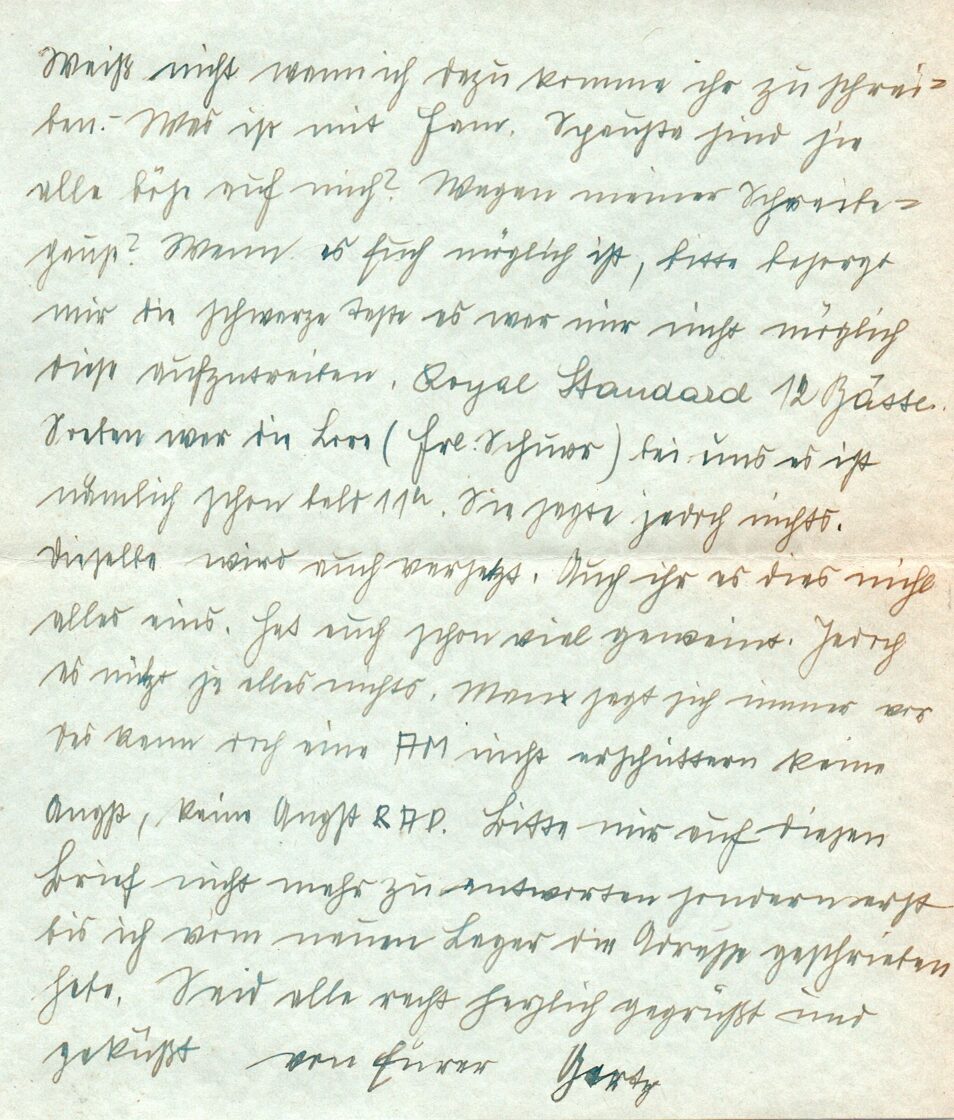 Weiß nicht wann ich dazu komme ihr zu schrei=
ben.- Was ist mit Fam. sind sie
alle böse auf mich? Wegen meiner Schreibe=
? Wenn es Euch möglich ist, bitte besorgt
mir die schwarze Taste es war mir nicht möglich
diese aufzutreiben. Royal Standard 12 Bässe.
Soeben war die Lore (Frl. Schurr) bei uns es ist
nämlich schon bald 11h. Sie sagte jedoch nichts.
Dieselbe wird auch versetzt. Auch ihr es dies nicht
alles eins. Hat auch schon viel geweint. Jedoch
es nützt ja alles nichts. Mann sagt sich immer vor
das kann doch eine AM nicht erschüttern keine
Angst, keine Angst RAD. Bitte mir auf diesen
Brief nicht mehr zu antworten sondern erst
bis ich vom neuen Lager die Adresse geschrieben
habe. Seid alle recht herzlich gegrüßt und
geküßt von Eurer